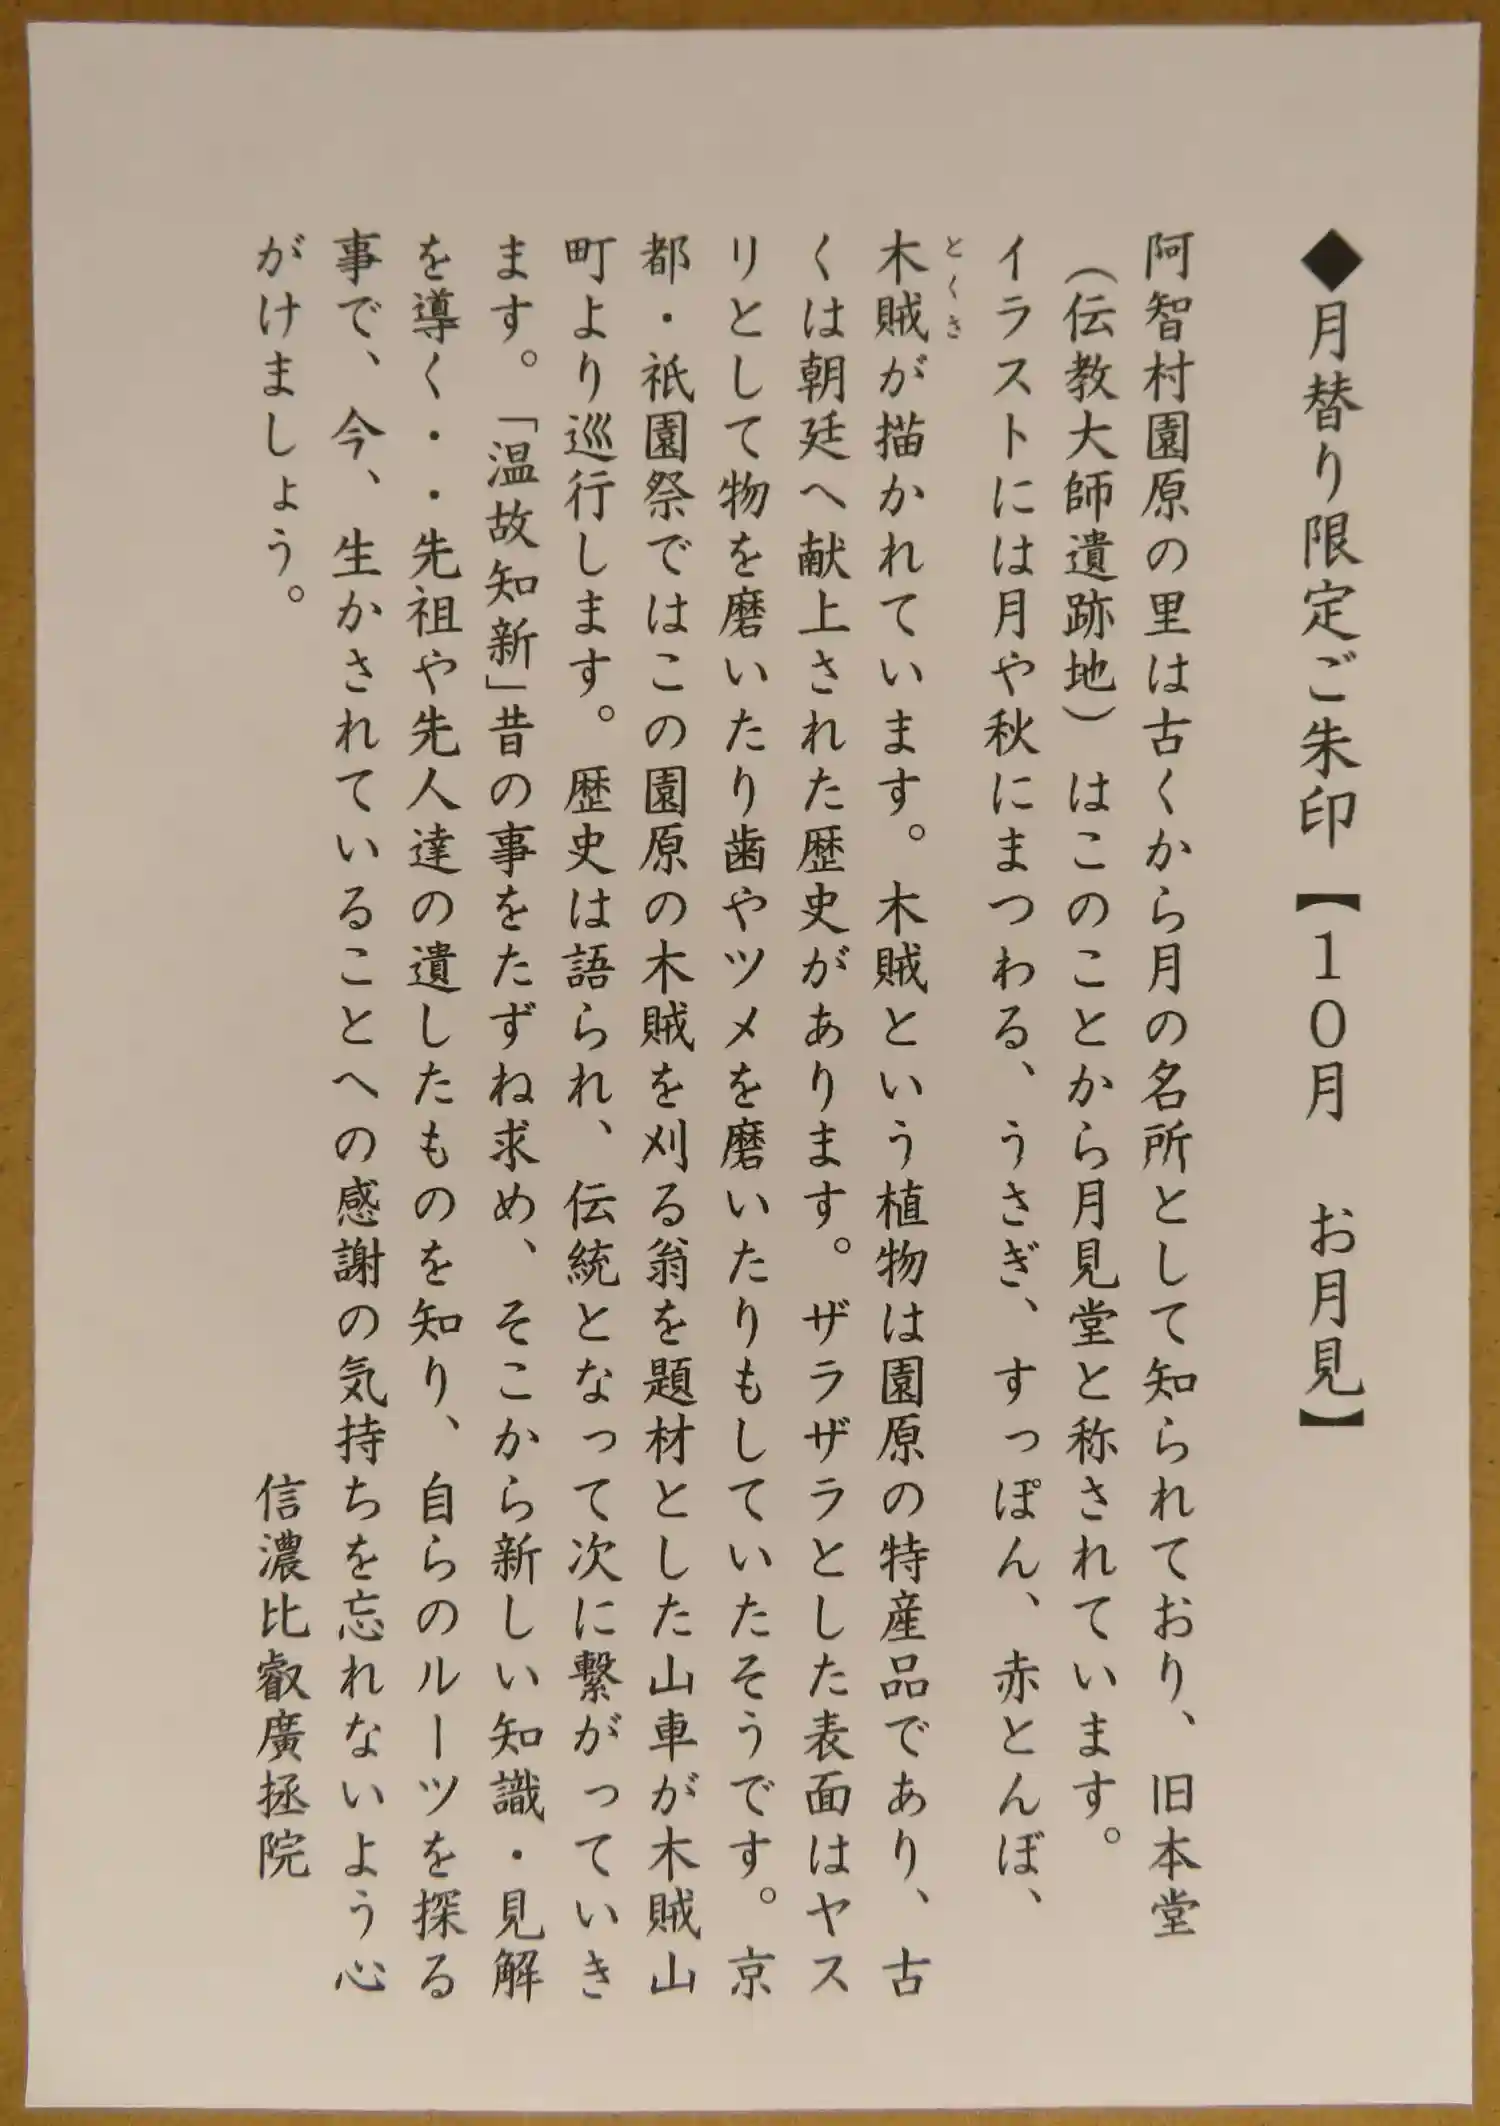 ◆月替り限定ご朱印【10月　お月見】
阿智村園原の里は古くから月の名所として知られており、旧本堂
（伝教大師遺跡地）はこのことから月見堂と称されています。
イラストには月や秋にまつわる、うさぎ、すっぽん、赤とんぼ、
とくさ
木賊が描かれています。木賊という植物は園原の特産品であり、古
くは朝廷へ献上された歴史があります。ザラザラとした表面はヤス
リとして物を磨いたり歯やツメを磨いたりもしていたそうです。京
都・祇園祭ではこの園原の木賊を刈る翁を題材とした山車が木賊山
町より巡行します。歴史は語られ、伝統となって次に繋がっていき
ます。「温故知新」昔の事をたずね求め、そこから新しい知識・見解
を導く・・先祖や先人達の遺したものを知り、自らのルーツを探る
事で、今、生かされていることへの感謝の気持ちを忘れないよう心
がけましょう。
信濃比叡廣拯院